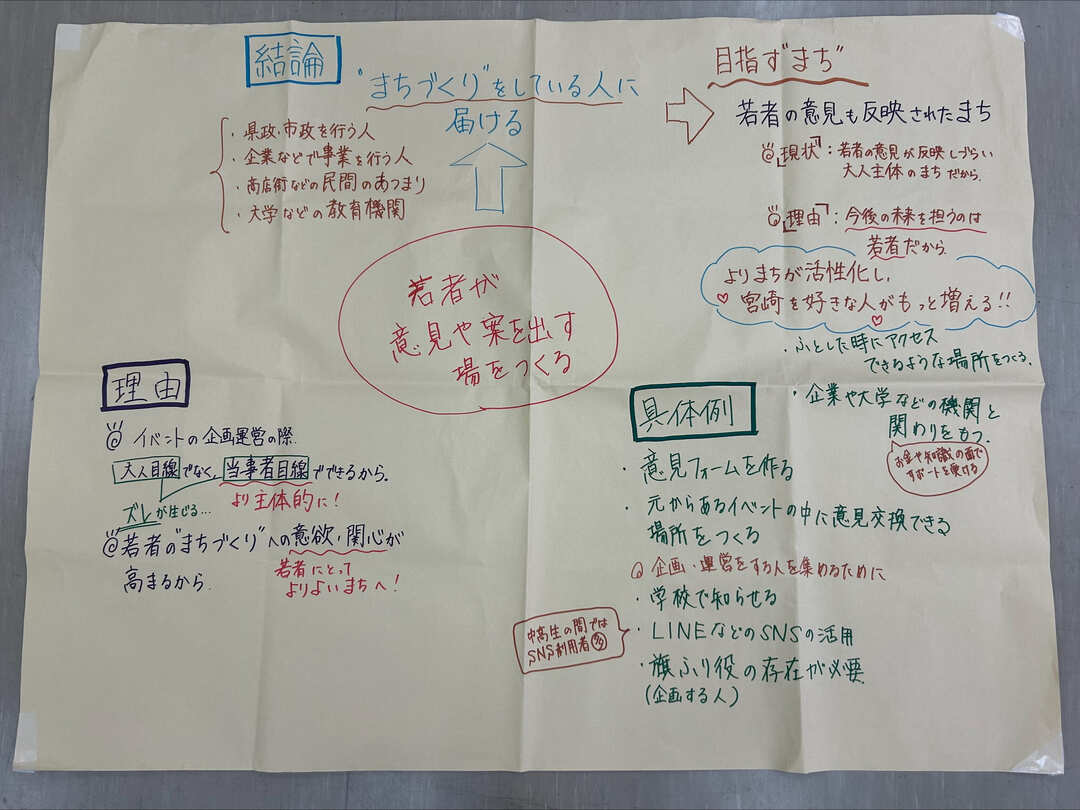 結論
"まちづくり"をしている人に
届ける
・県政・市政を行う人
・企業などで事業を行う人
・商店街などの民間のあつまり
・大学などの教育機関
目指す"まち"
若者の意見も反映されたまち
「現状」:若者の意見が反映しづらい
大人主体のまちだから。
「理由」:今後の未来を担うのは
若者だから。
よりまちが活性化し、
宮崎を好きな人がもっと増える!!
若者が
意見や案を出す
場をつくる
理由
イベントの企画運営の際、
大人目線でなく、当事者目線でできるから。
ズレが生じる…
より主体的に!
若者の"まちづくり"への意欲・関心が
高まるから。
若者にとって
よりよいまちへ!
・ふとした時にアクセス
できるような場所をつくる。
具体例
・企業や大学などの機関と
関わりをもつ。
お金や知識の面で
サポートを受ける
・意見フォームを作る
・元からあるイベントの中に意見交換できる
場所をつくる
企画・運営をする人を集めるために
・学校で知らせる
・LINEなどのSNSの活用
中高生の間では
SNS利用者多
・旗ふり役の存在が必要
(企画する人)